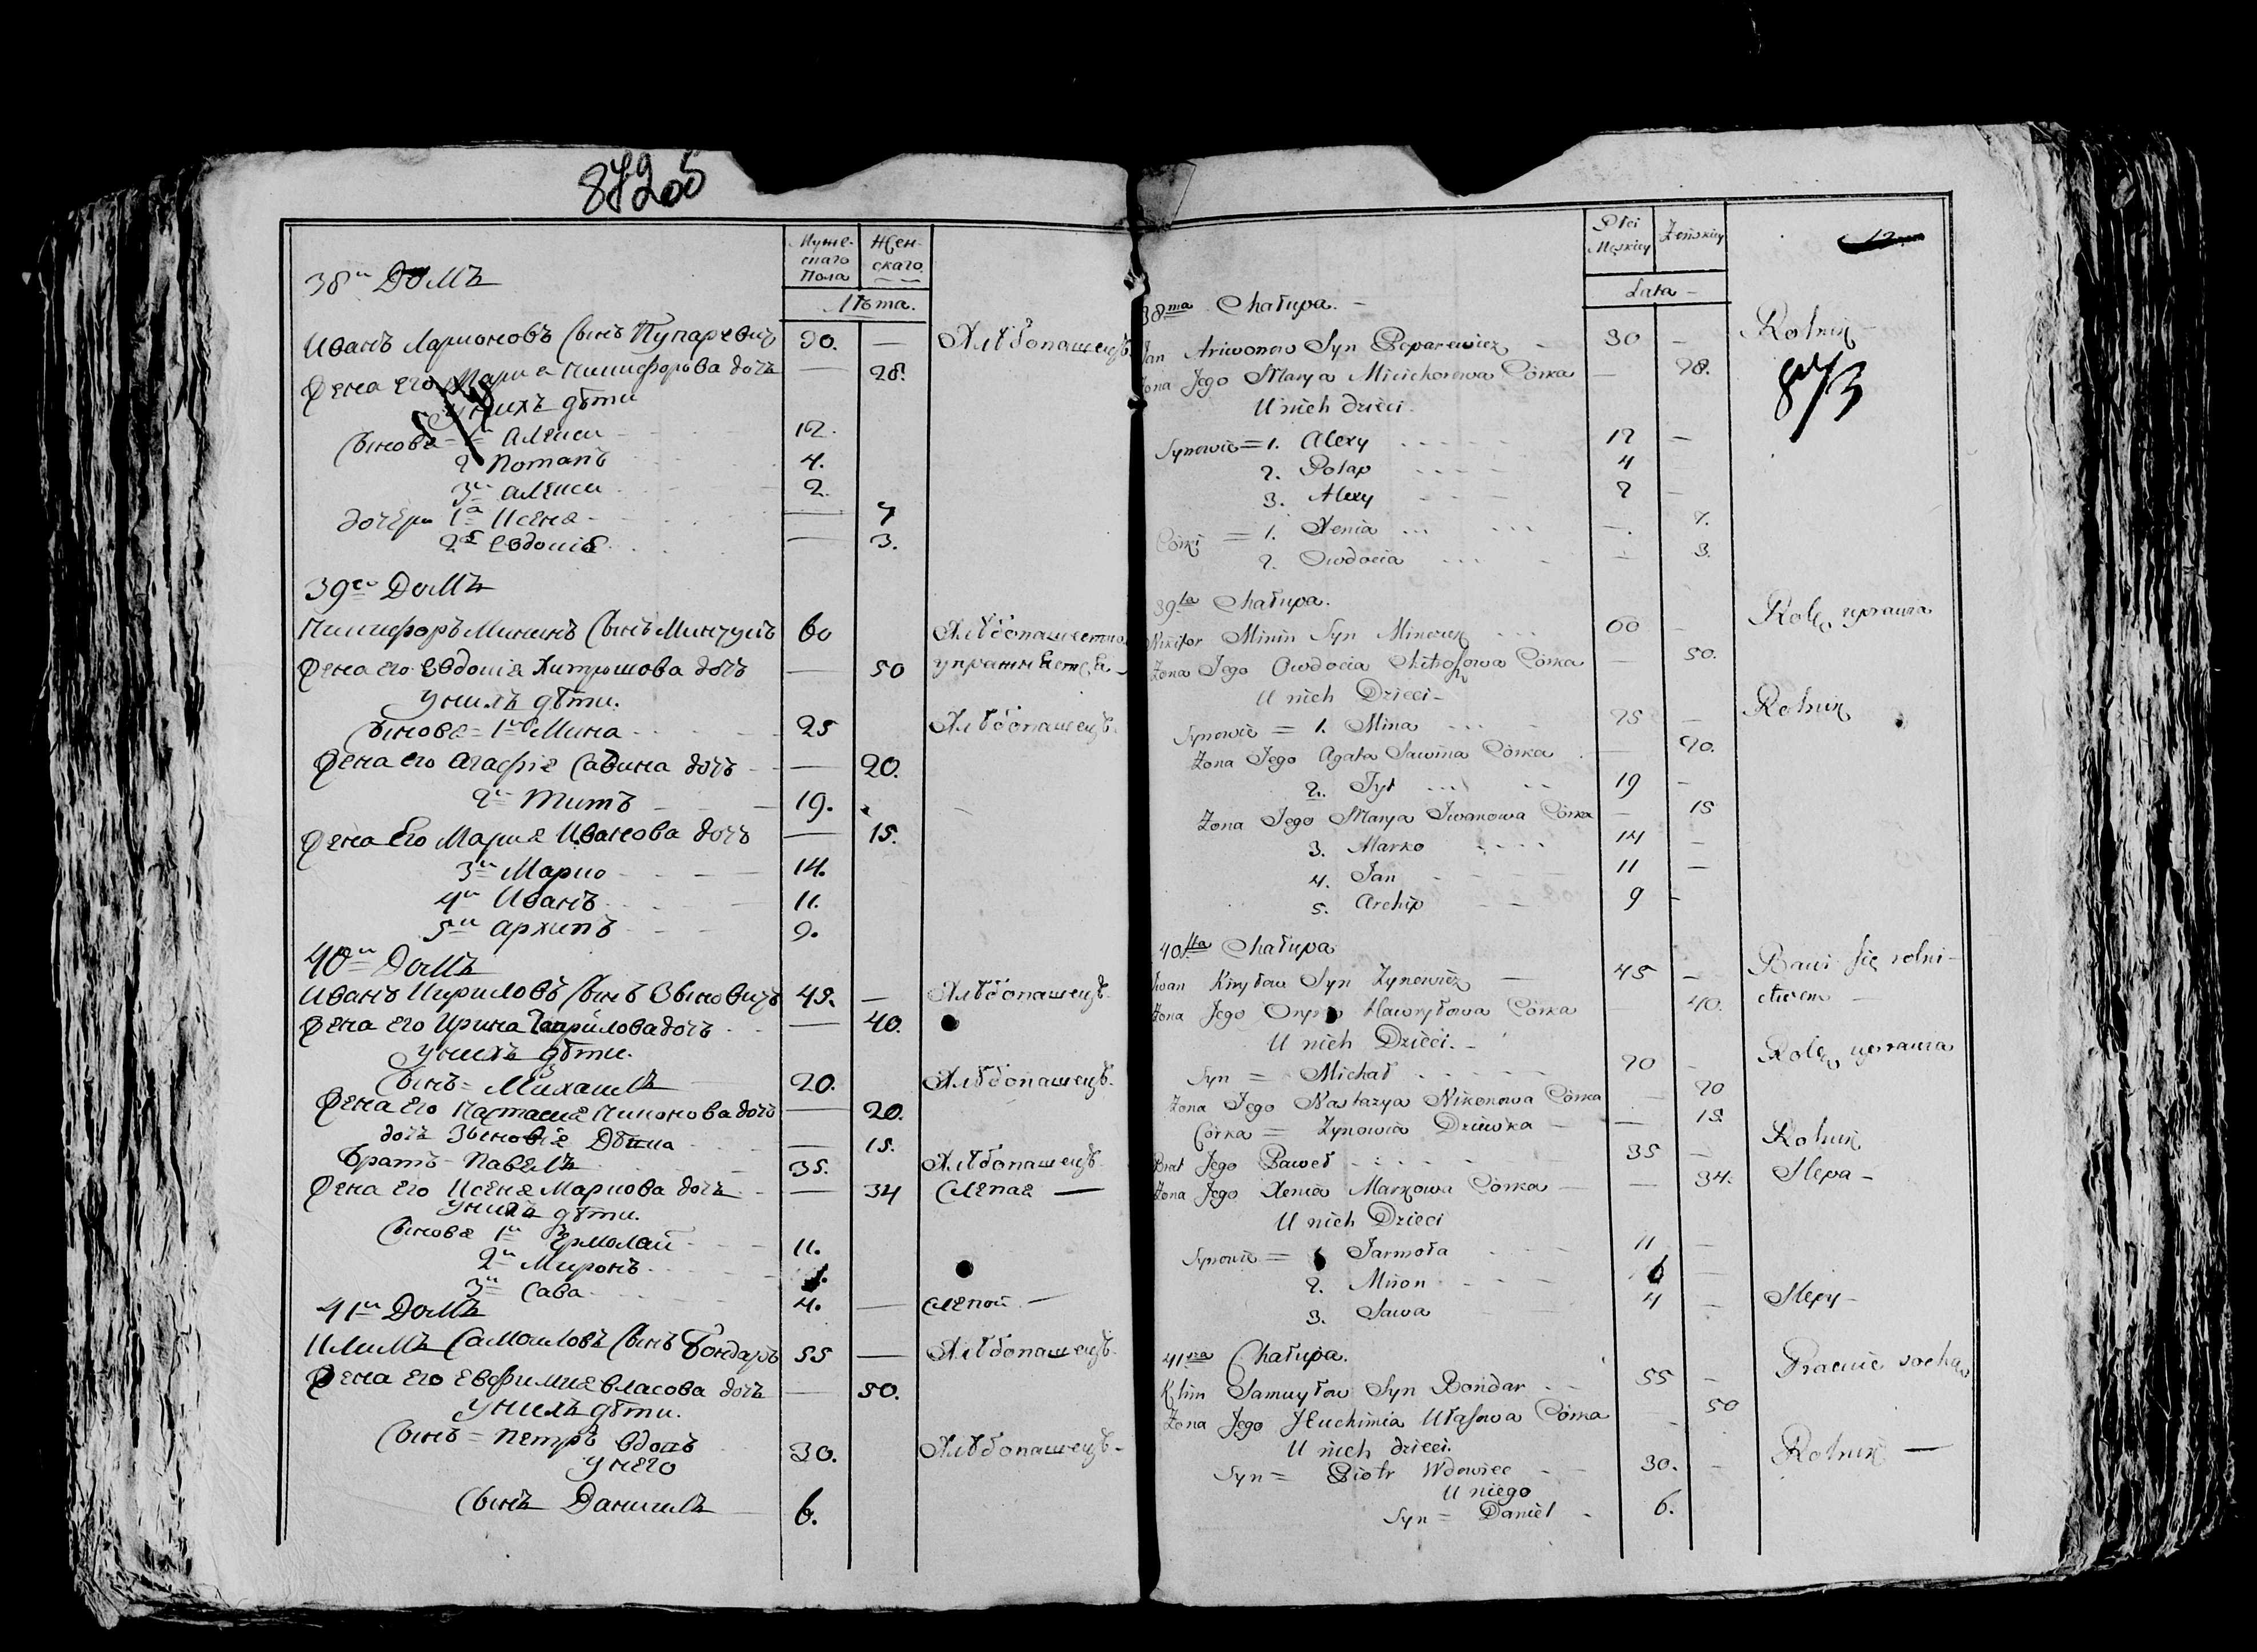 87200
Муже-
скаго
Пола
Жен-
скаго
Лѣта.
38й Домъ
Иванъ Ларионовъ Сынъ Пупаревичъ 30. — Хлѣбопашецъ
Жена его Мария Никифорова дочь — 28.
У нихъ дѣти
Сыновя = 1й Алекси 12.
2 Потапъ 4.
3й Алекси 2.
дочери 1я Ксеня — 7
2я Евдокія — 3.
39й Домъ
Никифоръ Мининъ Сынъ Минчукъ 60 Хлѣбопашествомъ
Жена его Евдокія Хитрошова дочь — 50 упражняется
У нихъ дѣти.
Сыновя = 1й Мина 25 Хлѣбопашецъ.
Жена его Агафия Савина дочь — 20.
2й Титъ 19.
Жена Его Мария Иванова дочь — 15.
3й Марко 14.
4й Иванъ 11.
5й Архипъ 9.
40й Домъ
Иванъ Кириловъ Сынъ Зыновичъ 45. — Хлѣбопашецъ.
Жена его Ирина Гаврилова дочь — 40.
У нихъ дѣти.
Сынъ = Михаилъ 20. Хлѣбопашецъ.
Жена его Настасия Никонова дочь — 20.
дочь Зыновія Дѣвка — 15.
Братъ Павелъ 35. Хлѣбопашецъ
Жена его Ксеня Маркова дочь — 34 Слепая —
У нихъ дѣти.
Сыновя 1й Ермолай 11.
2й Миронъ
3й Сава 4. — слепой —
41й Домъ
Климъ Самоиловъ Сынъ Бондаръ 55 — Хлѣбопашецъ.
Жена его Евфимия Власова дочь — 50.
У нихъ дѣти.
Сынъ = Петръ вдовъ 30. Хлѣбопашецъ —
У него
Сынъ Данилъ 6.
Płci
Męskiey
Żeńskiey
Lata —
12
873
38ma Chałupa. —
Jan Ariwonow Syn Poparewicz 30 — Rolnik —
Żona Jego Marya Mikichorowa Córka — 28.
U nich dzieci.
Synowie = 1. Alexy 12 —
2. Potap 4
3. Alexy 2 —
Córki = 1. Xenia — 7.
2. Owdocia — 3.
39ta Chałupa.
Nikifor Minin Syn Minczuk 60 — Rolę uprawia
Żona Jego Owdocia Chitroszowa Córka — 50.
U nich Dzieci —
Synowie = 1. Mina 25 — Rolnik
Żona Jego Agata Sawina Córka — 20.
2. Tyt 19 —
Żona Jego Marya Iwanowa Córka — 15
3. Marko 14 —
4. Jan 11 —
5. Archip 9 —
40sta Chałupa
Iwan Kiryłow Syn Zynowicz 45 — Bawi się rolni-
Żona Jego Hawryłowa Córka 40. ctwem —
U nich Dzieci. —
Syn = Michał 20 — Rolę uprawia
Żona Jego Nastazya Nikonowa Córka — 20
Córka = Zynowia Dziewka — 15
Brat Jego Paweł 35 — Rolnik
Żona Jego Xenia Markowa Córka — 34. Slepa —
U nich Dzieci
Synowie = Jarmoła 11 —
2. Miron 6 —
3. Sawa 4 — Slepy —
41sza Chałupa.
Klim Samuyłow Syn Bondar 55 — Pracuie sochą
Żona Jego Jeuchimia Ułasowa Córka — 50
U nich dzieci.
Syn = Piotr Wdowiec 30. — Rolnik —
U niego
Syn = Daniel 6.